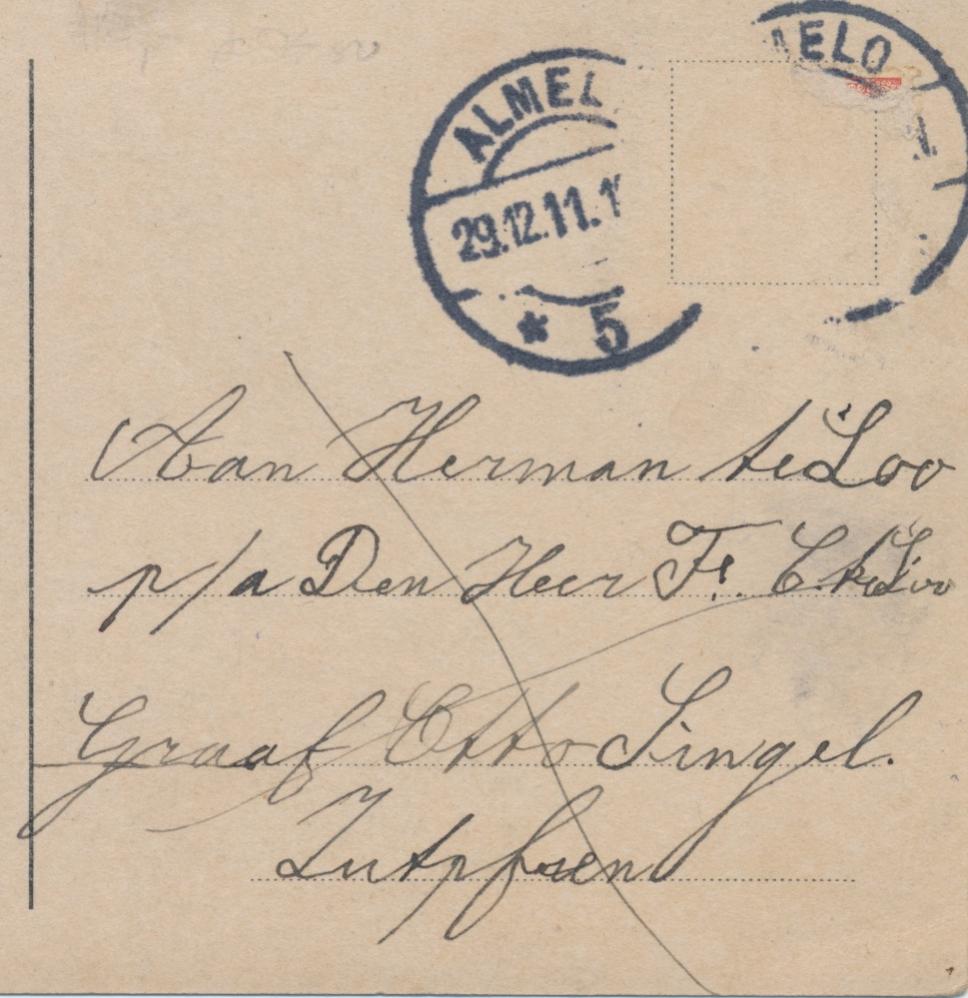 ALMEL
MELO
29.12.11.1
* 5
Aan Herman te Loo
p/a Den Heer F. C. te Loo
Graaf Otto Singel.
Zutphen